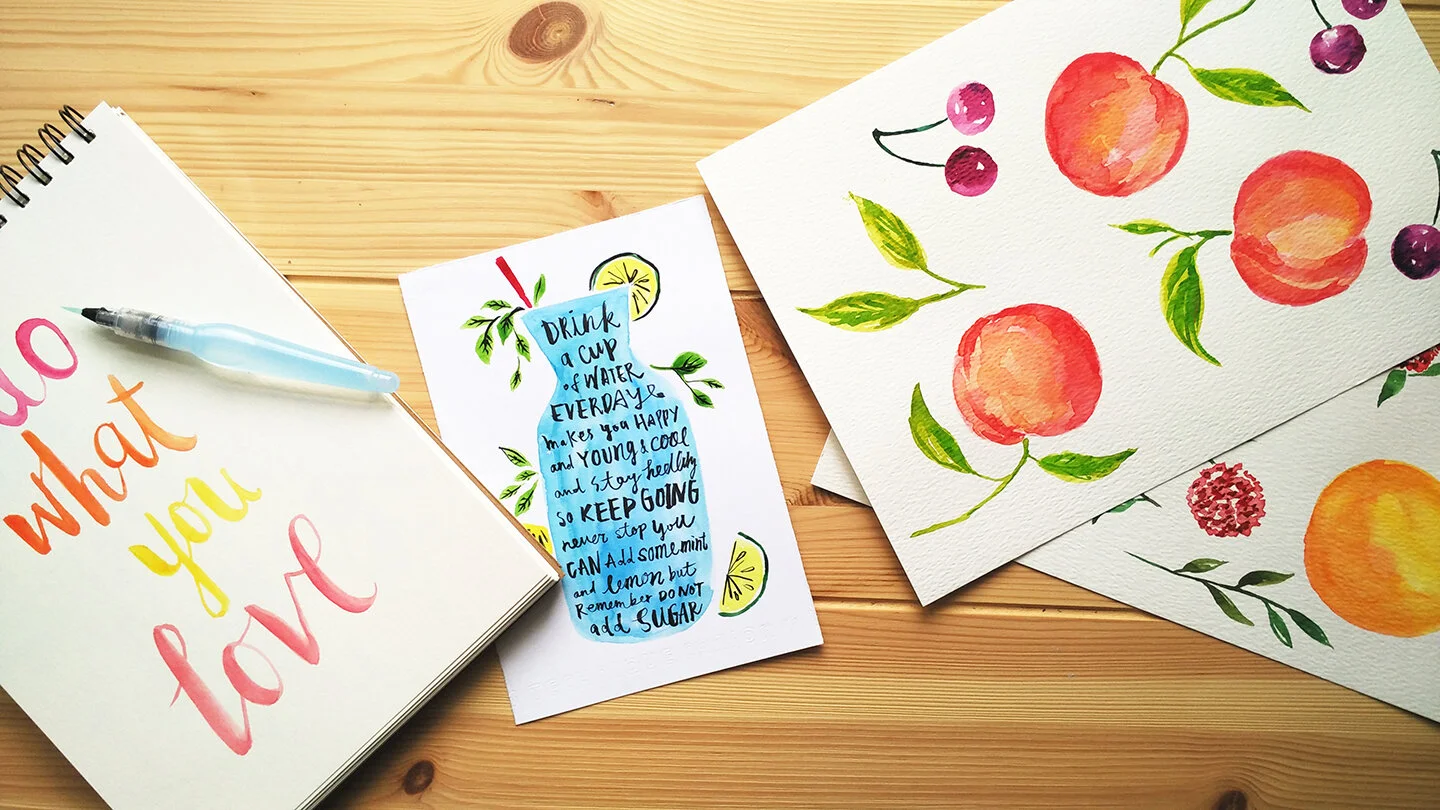 do
what
you
love
DRink
a cup
of WATER
EVERDAY &
makes you HAPPY
and YOUNG & COOL
and stay hedlthy
so KEEP GOING
never stop you
CAN Add some mint
and lemon but
Remember DO NOT
add SUGAR